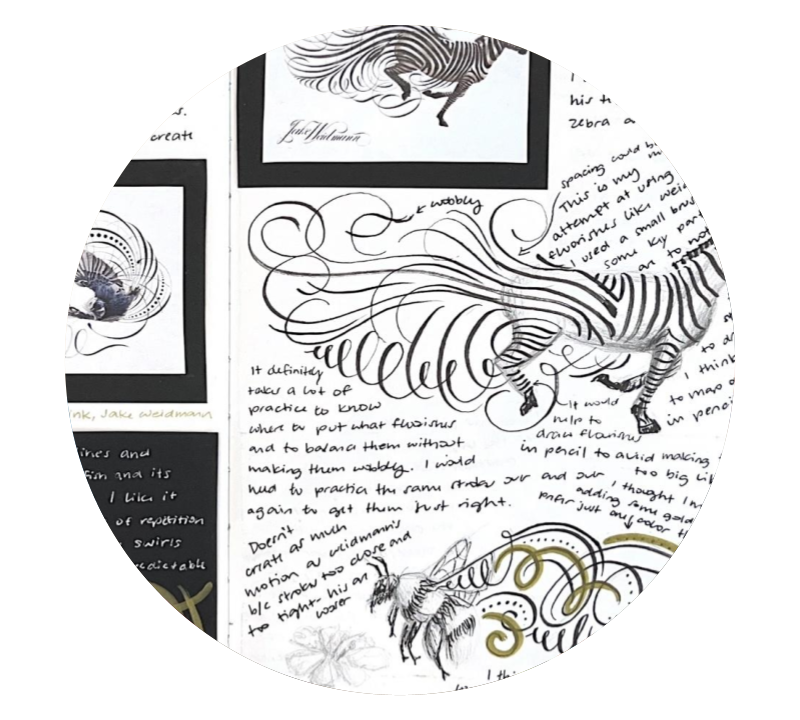 s.
create
Jake Weidmann
ink, Jake Weidmann
lines and
fish and its
I like it
of repetition
swirls
predictable
his
zebra a
← wobbly
spacing could b
This is my
attempt at using
flourishes like weid
I used a small brus
some key par
to not
It definitely
takes a lot of
practice to know
where to put what flourishes
and to balance them without
making them wobbly. I would
had to practice the same stroke over and over
again to get them just right.
It would
help to
draw flourishes
in pencil to avoid making
too big li
to d
I think
to map o
in penci
I thought I
adding some gold
prefer just one color
Doesn't
create as much
motion as weidmann's
b/c strokes too close and
too tight - his are
looser
I thi